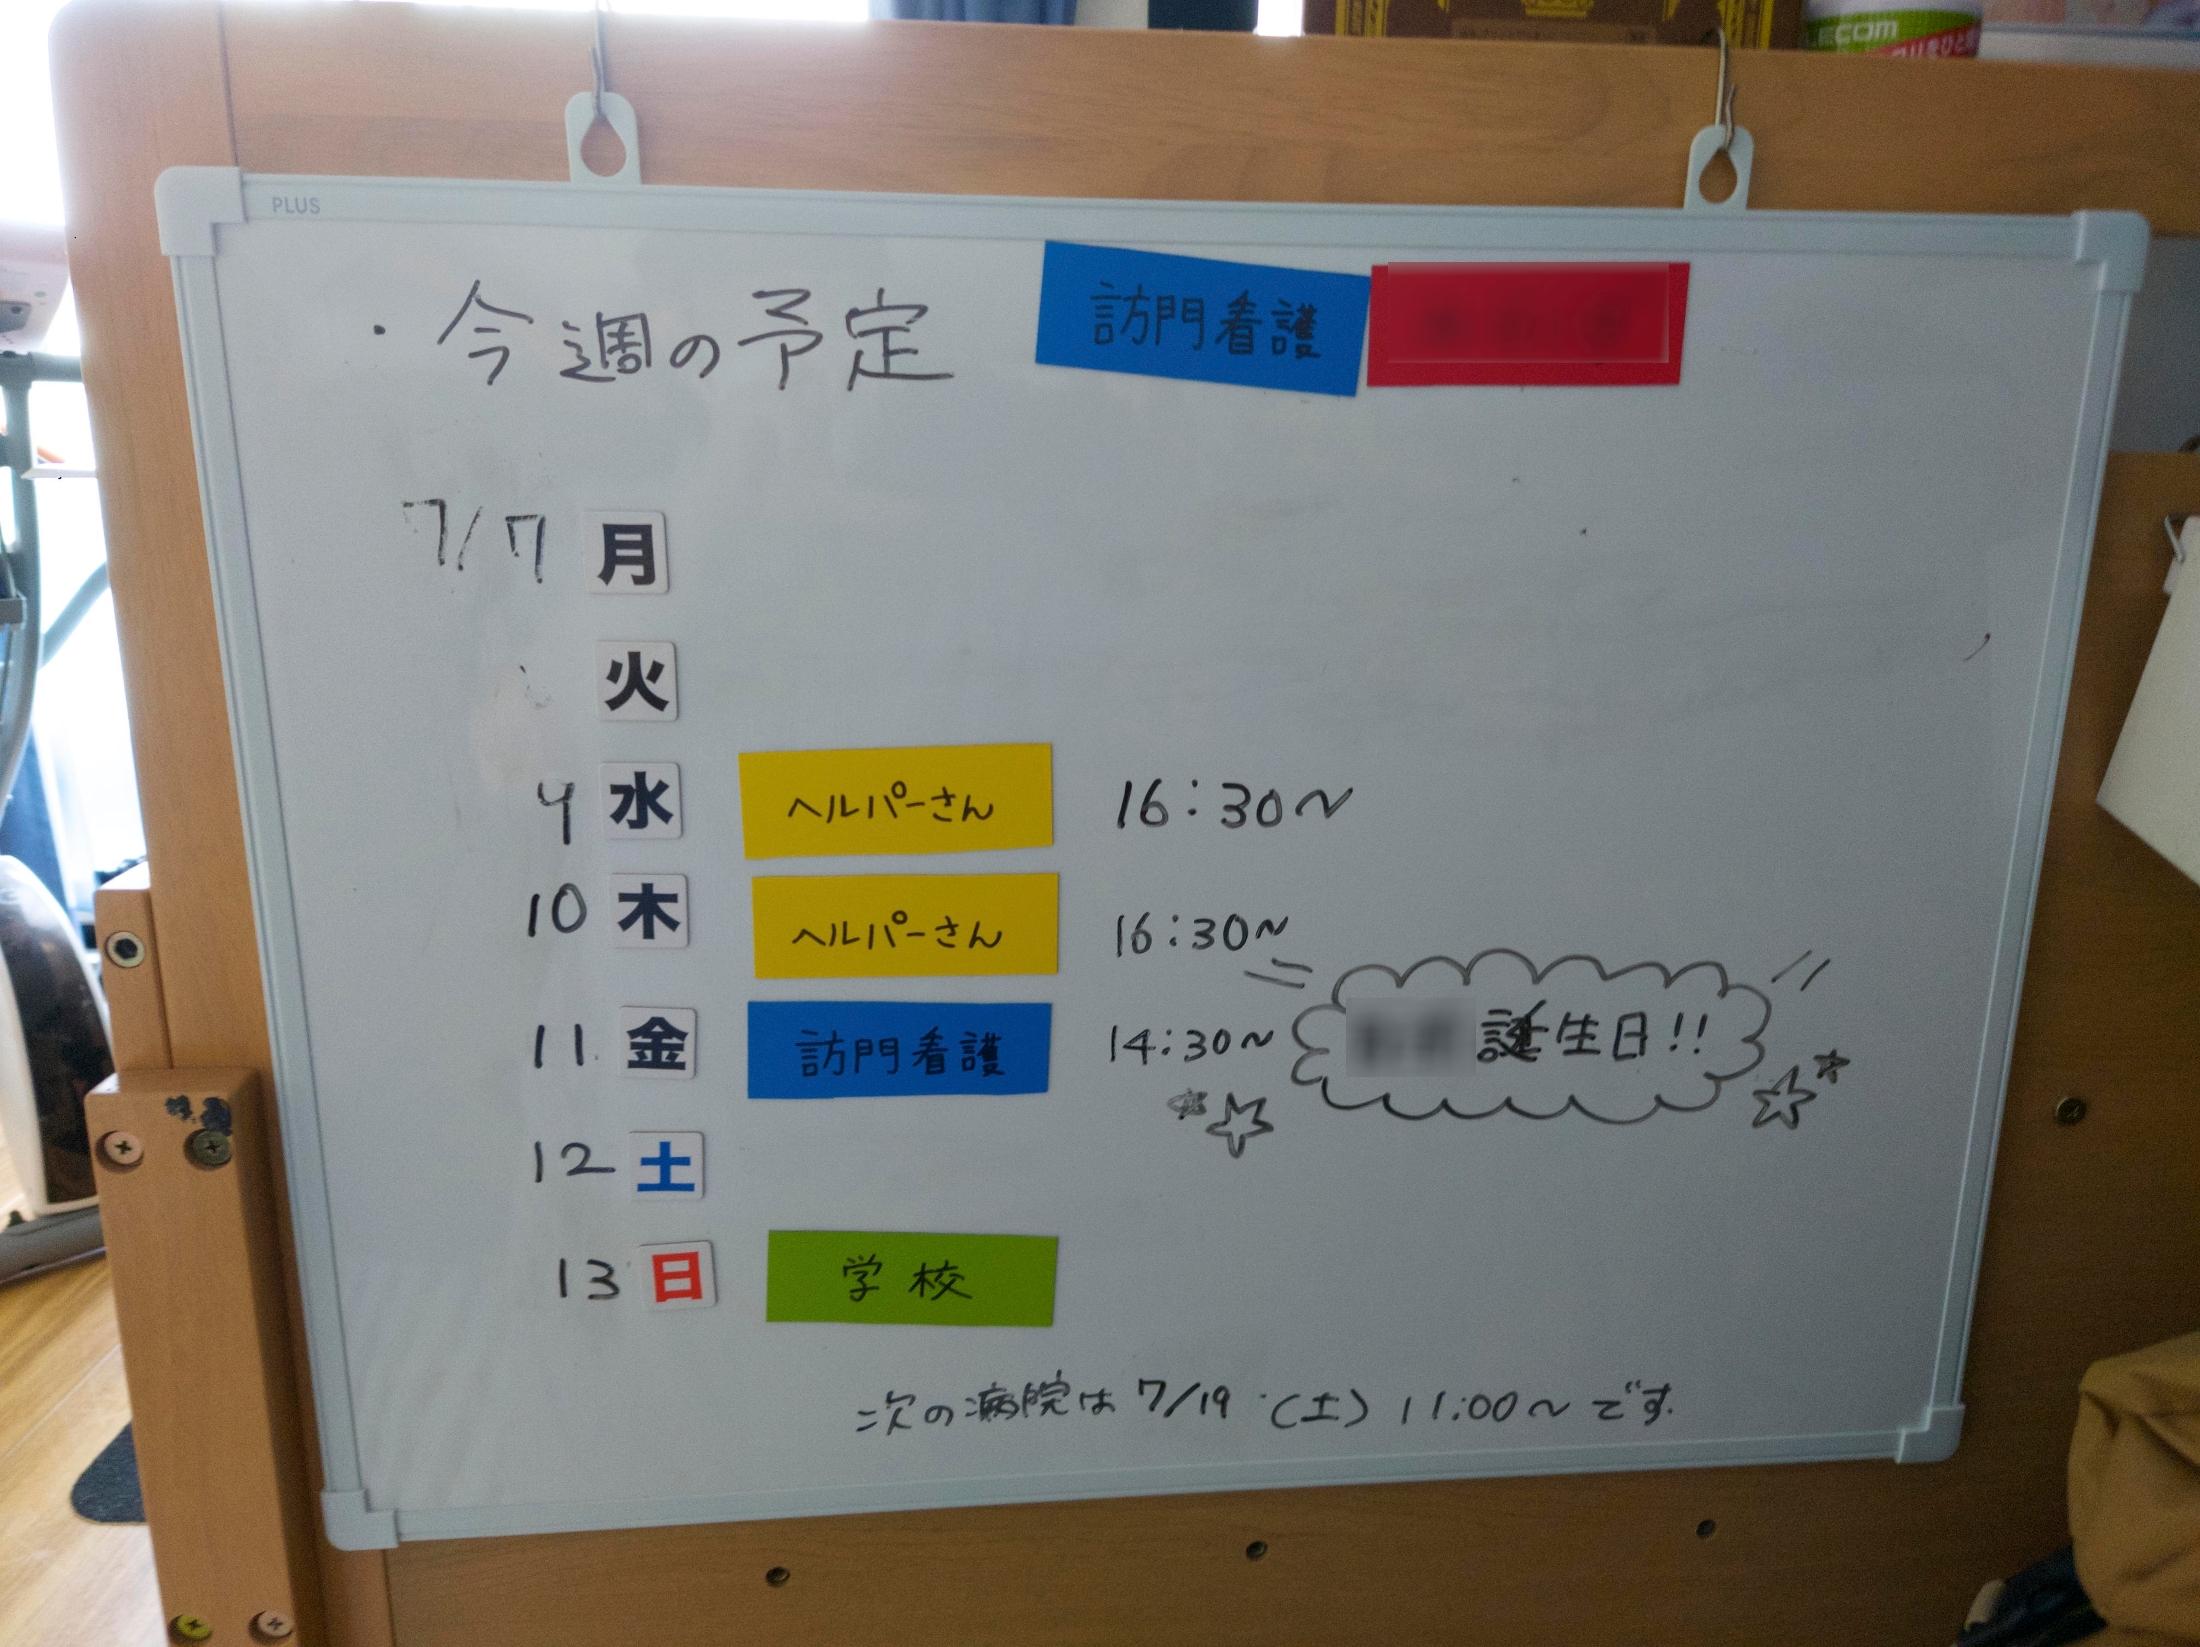 PLUS
・今週の予定 訪問看護
7/7 月
火
9 水 ヘルパーさん 16:30〜
10 木 ヘルパーさん 16:30〜
11 金 訪問看護 14:30〜 誕生日!!
12 土
13 日 学校
次の病院は 7/19 (土) 11:00〜です.